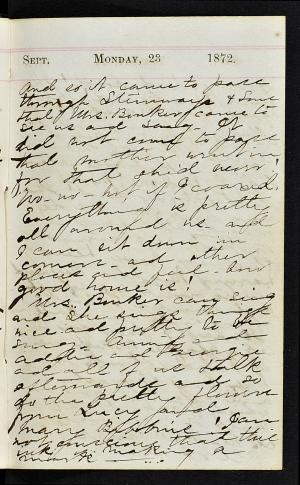 SEPT. MONDAY, 23 1872.
and so it came to pass
through Steinways & Sons
that Mrs. Bunker came to
see us and sang. It
did not come to pass
that mother
for that
no-no- not if I
Everything is pretty
all around us and
I can sit down in
corners and other
places and feel how
good home is!
Mrs. Bunker can sing
and she sings
nice and pretty to be
sung.
Addie and George
and all of us talk
afterwards and so
do the pretty flowers
from Lucy and
Mary Robbins! I am
not conscious that this
ink is making a
mark